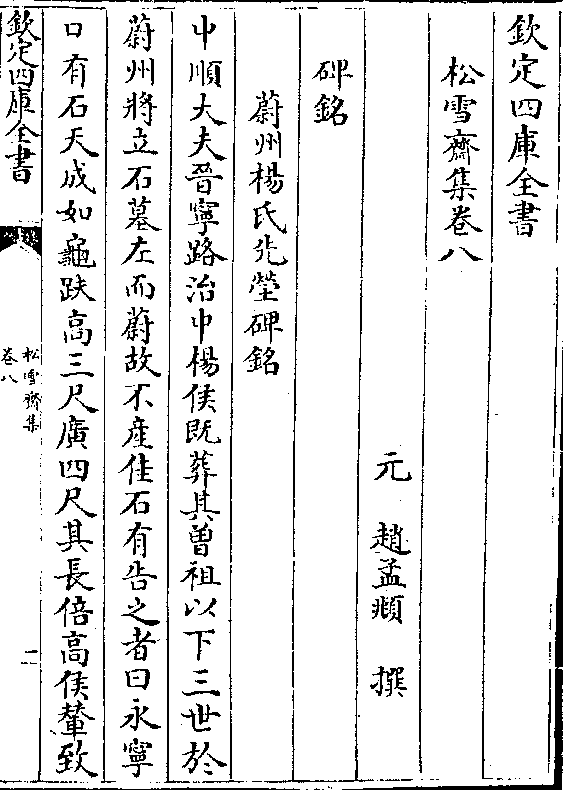 欽定四庫全書
松雪齋集卷八
元 趙孟頫 撰
碑銘
蔚州楊氏先塋碑銘
中順大夫晉寧路治中楊侯既葬其曾祖以下三世於
蔚州將立石墓左而蔚故不產佳石有告之者曰永寧
口有石天成如龜趺高三尺廣四尺其長倍高侯輦致
欽定四庫全書
松雪齋集
卷八